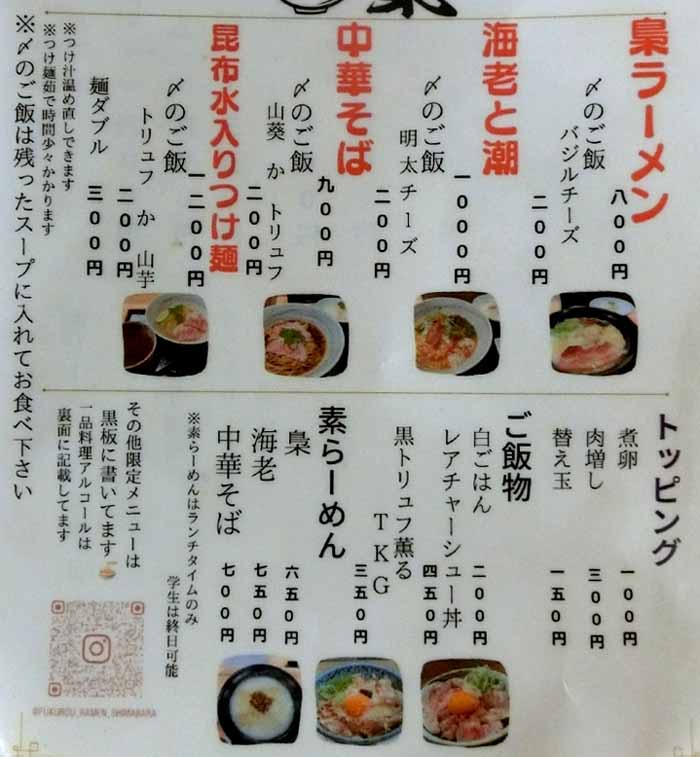 梟ラーメン
八〇〇円
〆のご飯
バジルチーズ
二〇〇円
海老と潮
一〇〇〇円
〆のご飯
明太チーズ
二〇〇円
中華そば
九〇〇円
〆のご飯
山葵 か トリュフ
二〇〇円
昆布水入りつけ麺
一二〇〇円
〆のご飯
トリュフ か 山芋
二〇〇円
麺ダブル
三〇〇円
※つけ汁温め直しできます
※つけ麺茹で時間少々かかります
※〆のご飯は残ったスープに入れてお食べ下さい
トッピング
煮卵
一〇〇円
肉増し
三〇〇円
替え玉
一五〇円
ご飯物
白ごはん
二〇〇円
レアチャーシュー丼
四五〇円
黒トリュフ薫る
TKG
三五〇円
素らーめん
梟
六五〇円
海老
七五〇円
中華そば
七〇〇円
※素らーめんはランチタイムのみ
学生は終日可能
その他限定メニューは
黒板に書いてます
一品料理アルコールは
裏面に記載してます
@FUKUROU_RAMEN_SHIMABARA